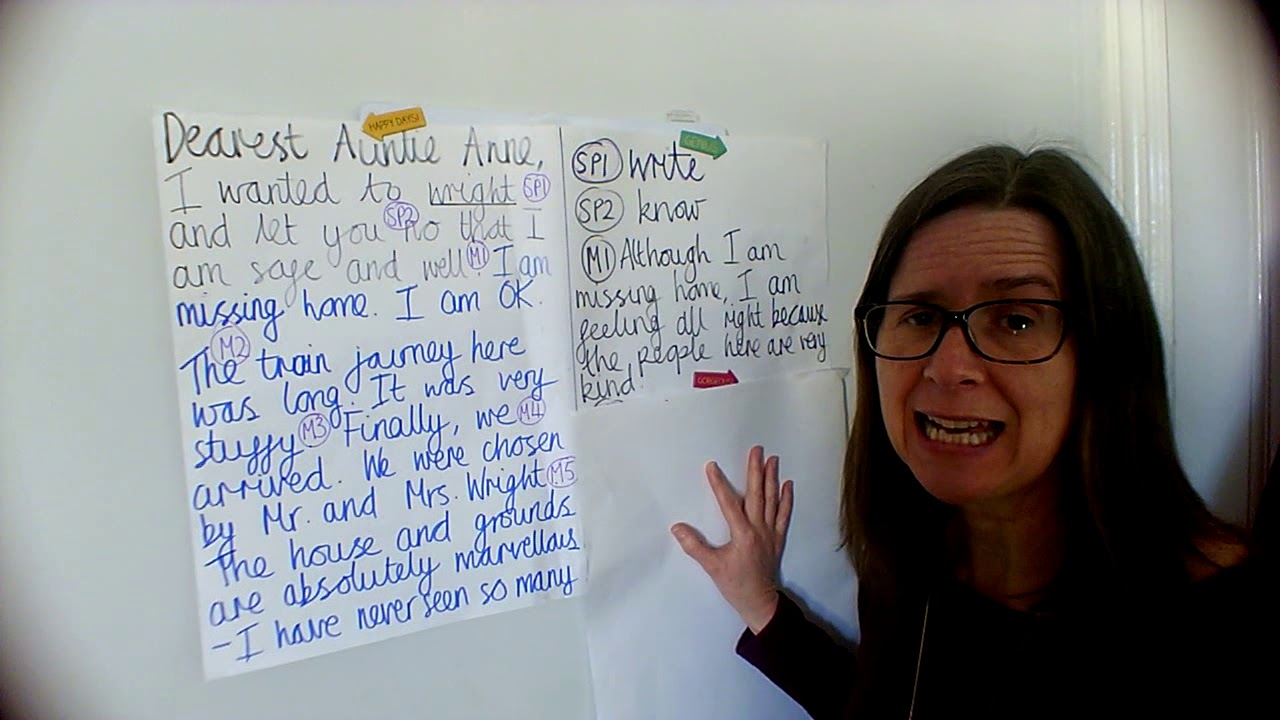 HAPPY DAYS!
Dearest Auntie Anne,
I wanted to wright SP1
and let you SP2 no that I
am safe and well M1 I am
missing home. I am OK.
M2
The train journey here
was long. It was very
stuffy M3 Finally, we M4
arrived. We were chosen
by Mr. and Mrs. Wright M5
The house and grounds
are absolutely marvellous
- I have never seen so many
SP1 write
SP2 know
M1 Although I am
missing home, I am
feeling all right because
the people here are very
kind.